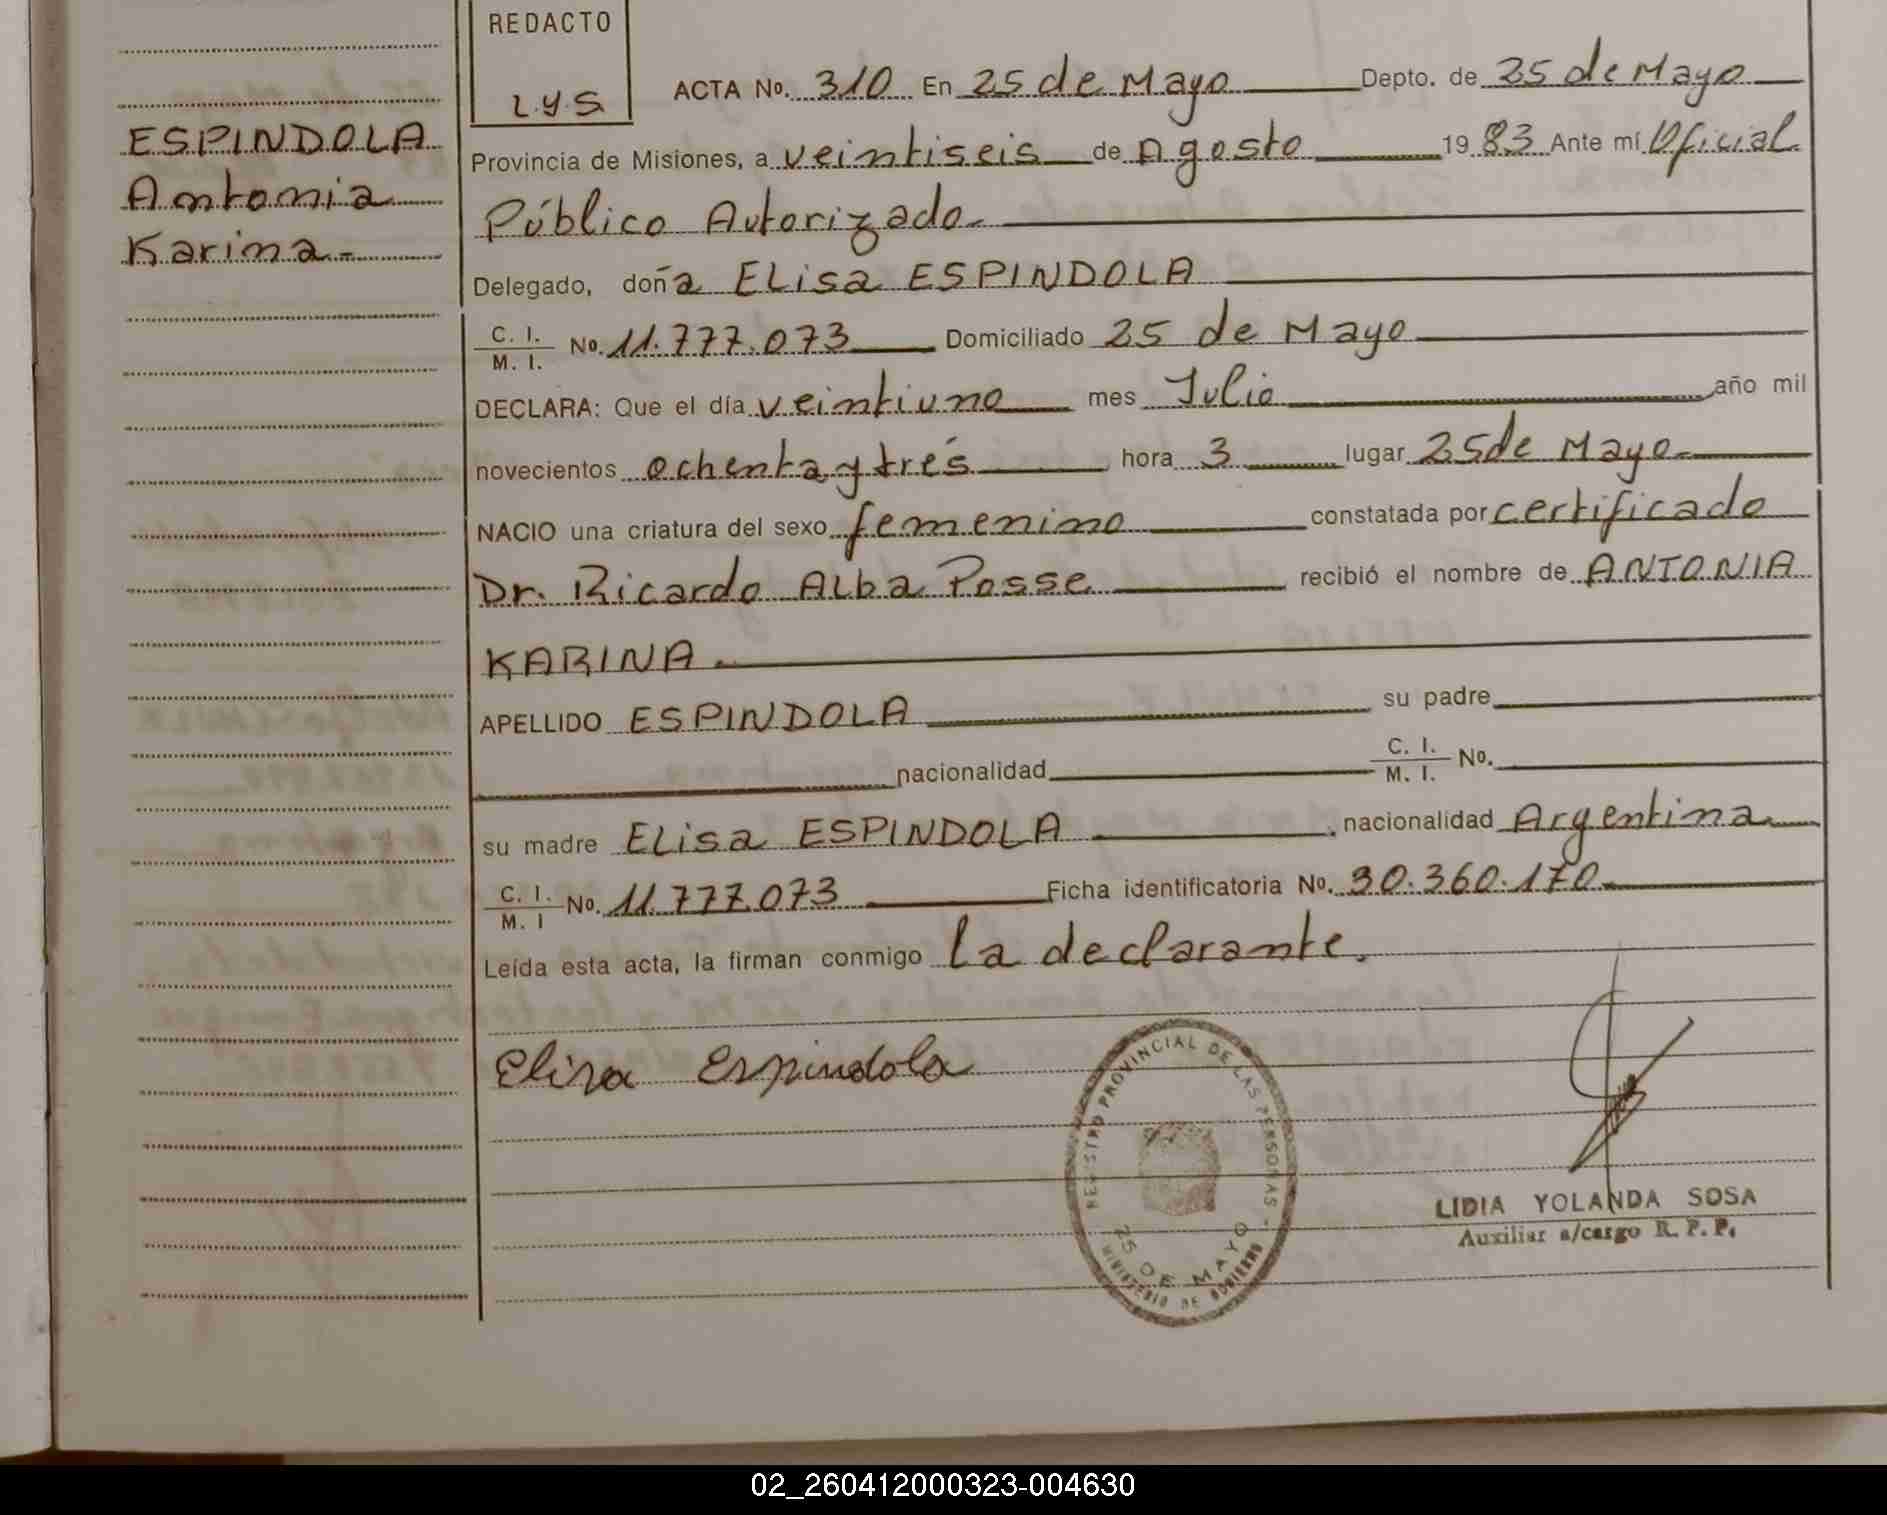 REDACTO
L.Y.S
ESPINDOLA
Antonia
Karina.-
ACTA No. 310 En 25 de Mayo Depto. de 25 de Mayo
Provincia de Misiones, a veintiseis de Agosto 1983 Ante mí Oficial
Público Autorizado
Delegado, doña ELisa ESPINDOLA
C. I.
M. I. No. 11.777.073 Domiciliado 25 de Mayo
DECLARA: Que el día veintiuno mes Julio año mil
novecientos ochenta y trés hora 3 lugar 25 de Mayo
NACIO una criatura del sexo femenino constatada por certificado
Dr. Ricardo ALba Posse recibió el nombre de ANTONIA
KARINA.
APELLIDO ESPINDOLA su padre
nacionalidad C. I.
M. I. No.
su madre ELisa ESPINDOLA, nacionalidad Argentina
C. I.
M. I No. 11.777.073 Ficha identificatoria No. 30.360.170
Leída esta acta, la firman conmigo La declarante.
Elisa Espindola
REGISTRO PROVINCIAL DE LAS PERSONAS -
25 DE MAYO
MINISTERIO DE GOBIERNO
LIDIA YOLANDA SOSA
Auxiliar a/cargo R. P. P.
02_260412000323-004630